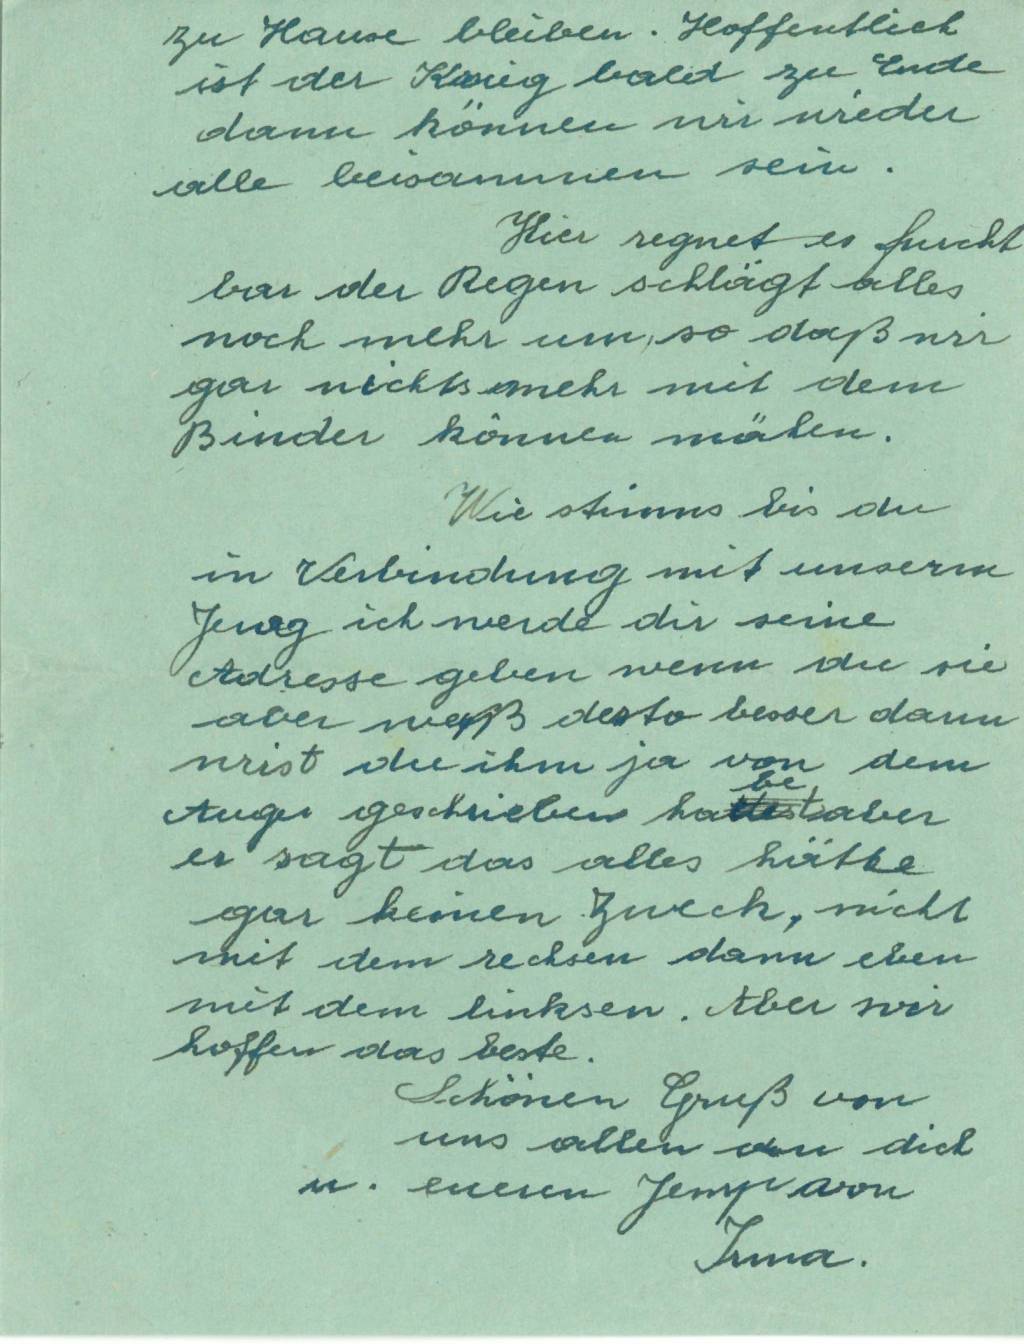 zu Hause bleiben. Hoffentlich
ist der Krieg bald zu Ende
dann können wir wieder
alle beisammen sein.
Hier regnet es furcht
bar der Regen schlägt alles
noch mehr um, so daß wir
gar nichts mehr mit dem
Binder können mähen.
Wie stimms bis du
in Verbindung mit unserm
Jeng ich werde dir seine
Adresse geben wenn du sie
aber weß desto besser dann
wrist du ihm ja von dem
Auge geschrieben habe aber
er sagt das alles hätte
gar keinen Zweck, nicht
mit dem rechsen dann eben
mit dem linksen. Aber wir
hoffen das beste.
Schönen Gruß von
uns allen an dich
u. eueren Jemp von
Irma.